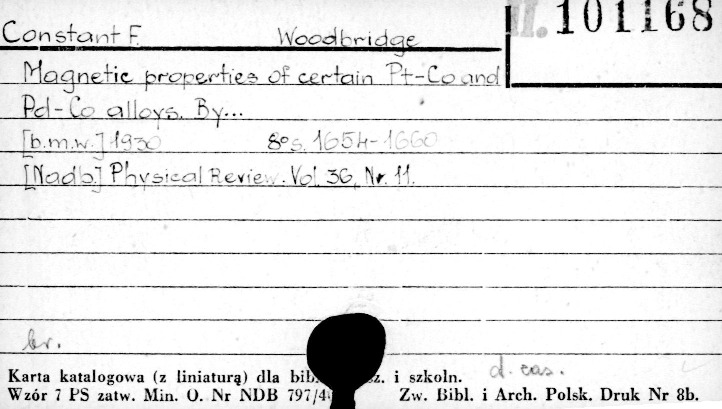 II. 101168
Constant F. Woodbridge
Magnetic properties of certain Pt-Co and
Pd-Co alloys. By...
[b.m.w.] 1930 8° s. 1654-1660
[Nadb.] Physical Review. Vol. 36, Nr. 11.
br.
d. cas.
Karta katalogowa (z liniaturą) dla i szkoln.
Wzór 7 PS zatw. Min. O. Nr NDB 797/4 Zw. Bibl. i Arch. Polsk. Druk Nr 8b.